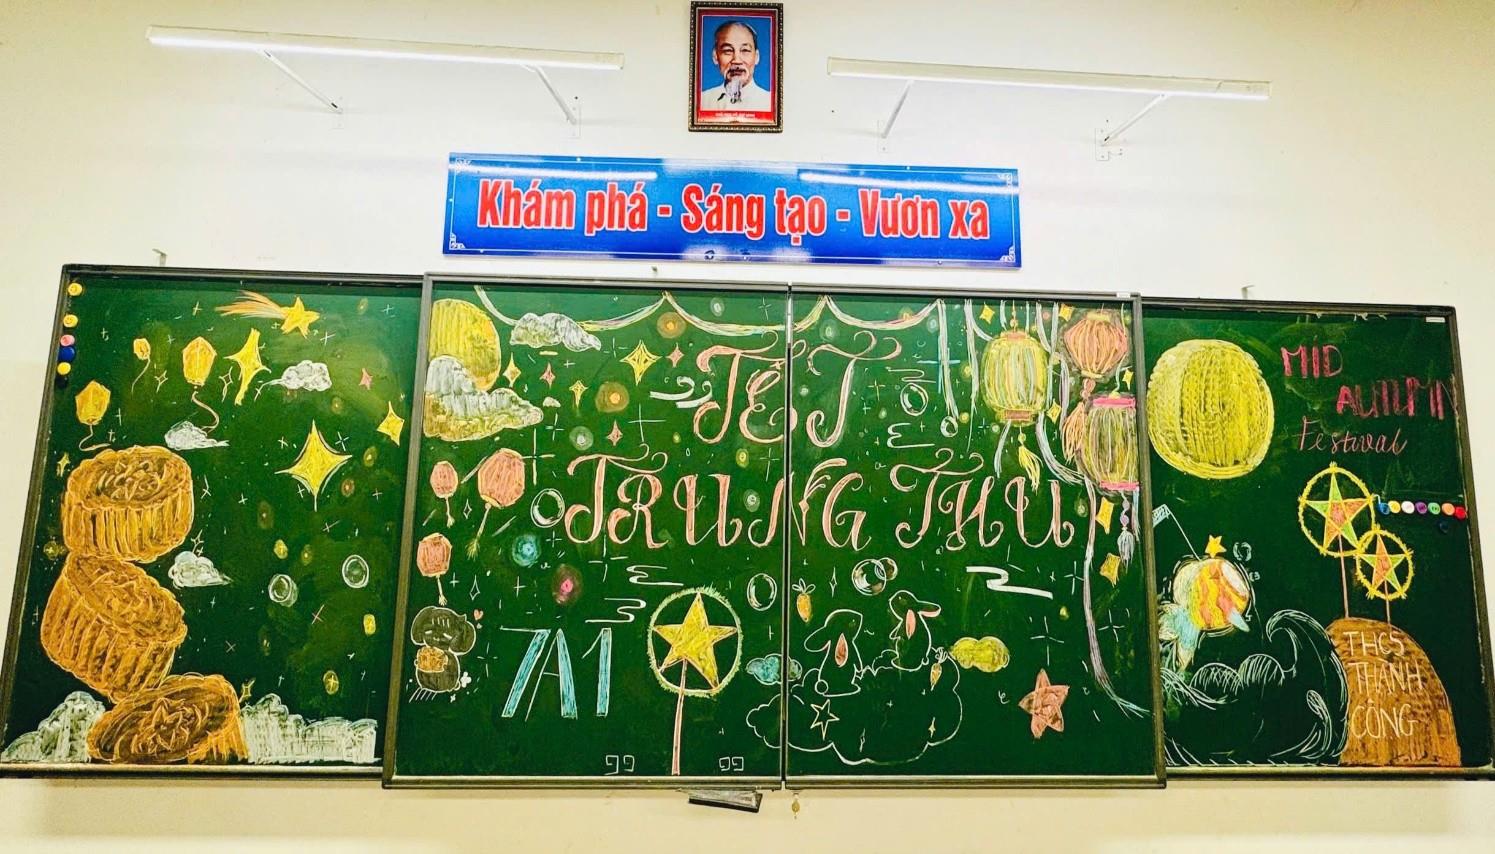 Khám phá - Sáng tạo - Vươn xa
TẾT
TRUNG THU
7A1
MID
AUTUMN
Festival
THCS
THÀNH
CÔNG